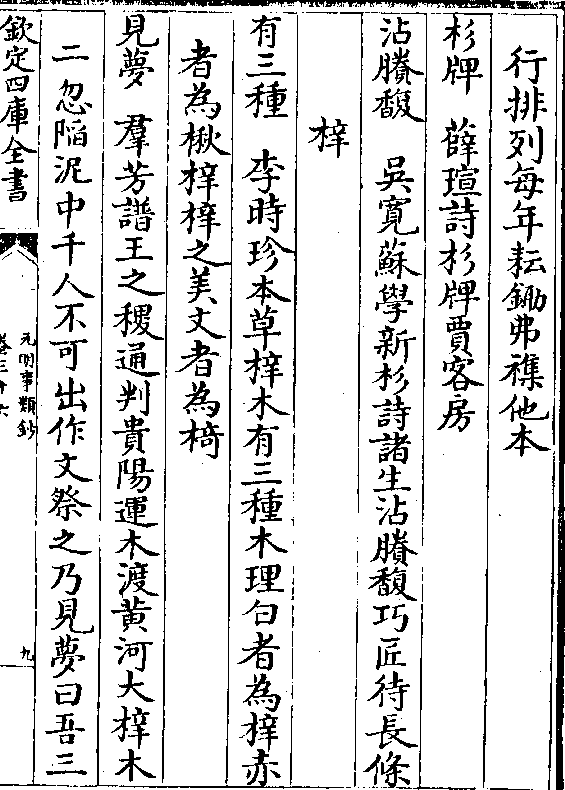 行排列每年耘鋤弗襍他本
杉牌　薛瑄詩杉牌賈客房
沾賸馥　吳寛蘇學新杉詩諸生沾賸馥巧匠待長條
梓
有三種　李時珍本草梓木有三種木理白者為梓赤
者為楸梓梓之美文者為椅
見夢　羣芳譜王之稷通判貴陽運木渡黄河大梓木
二忽陷泥中千人不可出作文祭之乃見夢曰吾三
欽定四庫全書
元明事類鈔
卷三十六
九